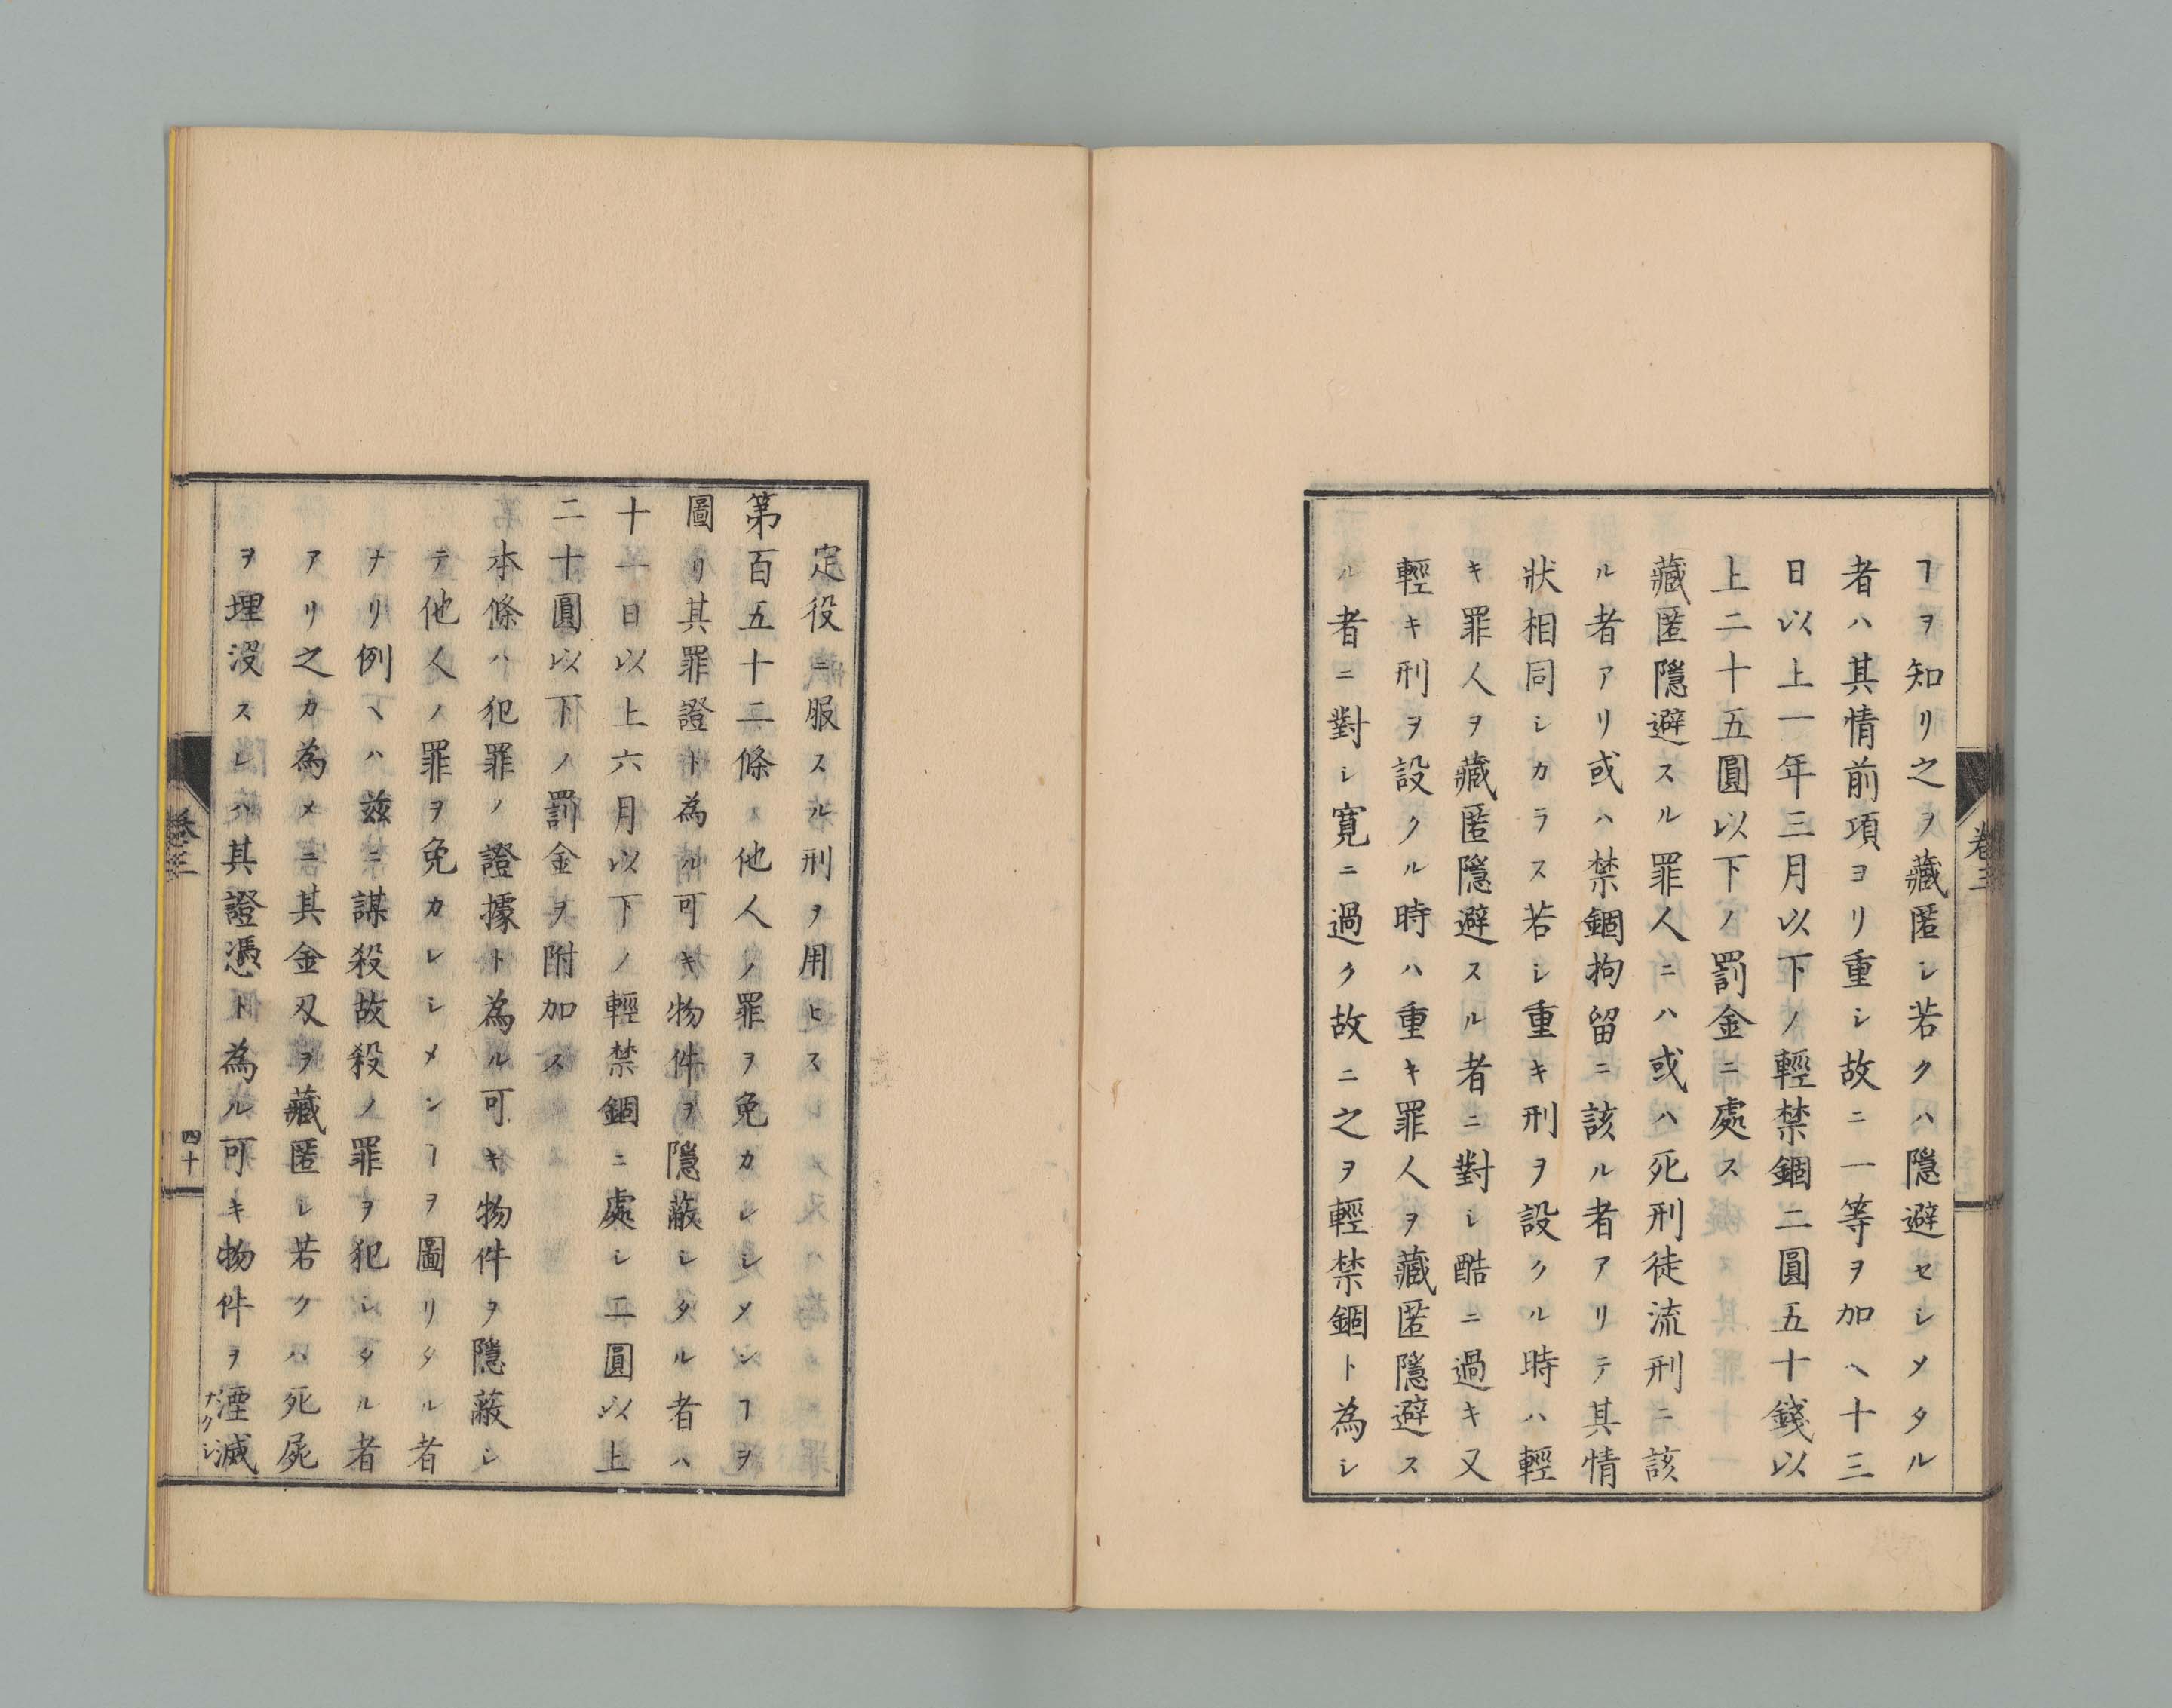 ヿヲ知リ之ヲ藏匿シ若クハ隱避セシメタル
者ハ其情前項ヨリ重シ故ニ一等ヲ加ヘ十三
日以上一年三月以下ノ輕禁錮二圓五十錢以
上二十五圓以下ノ罰金ニ處ス
藏匿隱避スル罪人ニハ或ハ死刑徒流刑ニ該
ル者アリ或ハ禁錮拘留ニ該ル者アリテ其情
狀相同シカラス若シ重キ刑ヲ設クル時ハ輕
キ罪人ヲ藏匿隱避スル者ニ對シ酷ニ過キ又
輕キ刑ヲ設クル時ハ重キ罪人ヲ藏匿隱避ス
ル者ニ對シ寛ニ過ク故ニ之ヲ輕禁錮ト為シ
卷三
定役ニ服スル刑ヲ用ヒス
第百五十二條 他人ノ罪ヲ免カレシメンヿヲ
圖リ其罪證ト為ル可キ物件ヲ隱蔽シタル者ハ
十一日以上六月以下ノ輕禁錮ニ處シ二圓以上
二十圓以下ノ罰金ヲ附加ス
本條ハ犯罪ノ證據ト為ル可キ物件ヲ隱蔽シ
テ他人ノ罪ヲ免カレシメンヿヲ圖リタル者
ナリ例ヘハ茲ニ謀殺故殺ノ罪ヲ犯シタル者
アリ之カ為メニ其金刄ヲ藏匿シ若クハ死屍
ヲ埋沒スレハ其證憑ト為ル可キ物件ヲ湮滅
ナクシ
卷三
四十